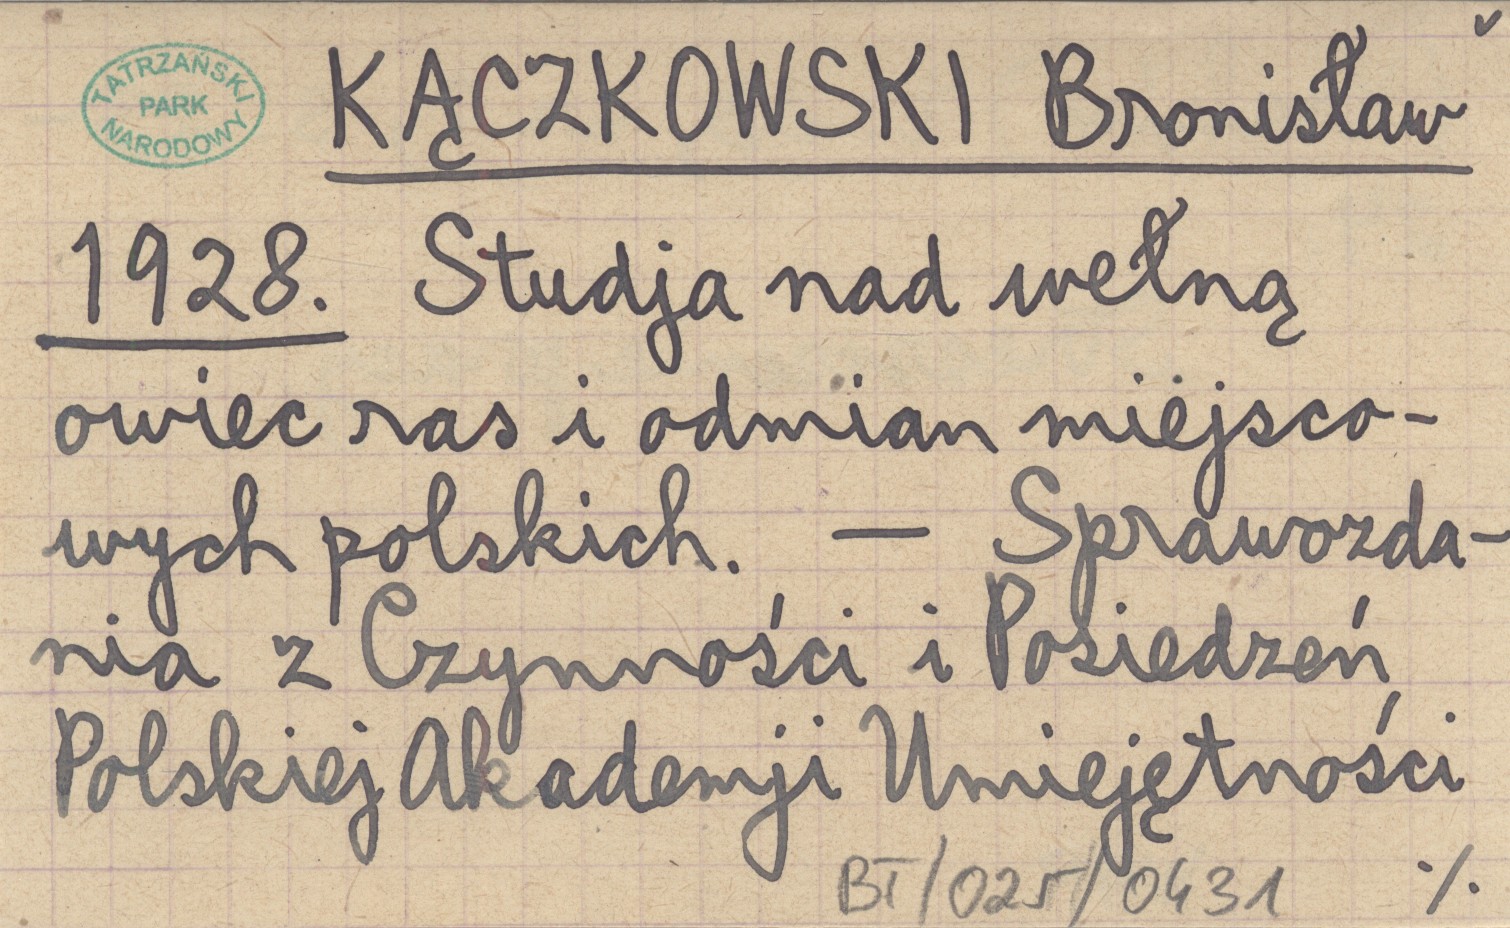 TATRZAŃSKI
PARK
NARODOWY
KĄCZKOWSKI Bronisław
1928. Studja nad wełną
owiec ras i odmian miejsco-
wych polskich. — Sprawozda-
nia z Czynności i Posiedzeń
Polskiej Akademji Umiejętności
BT/025/0431 ·/.